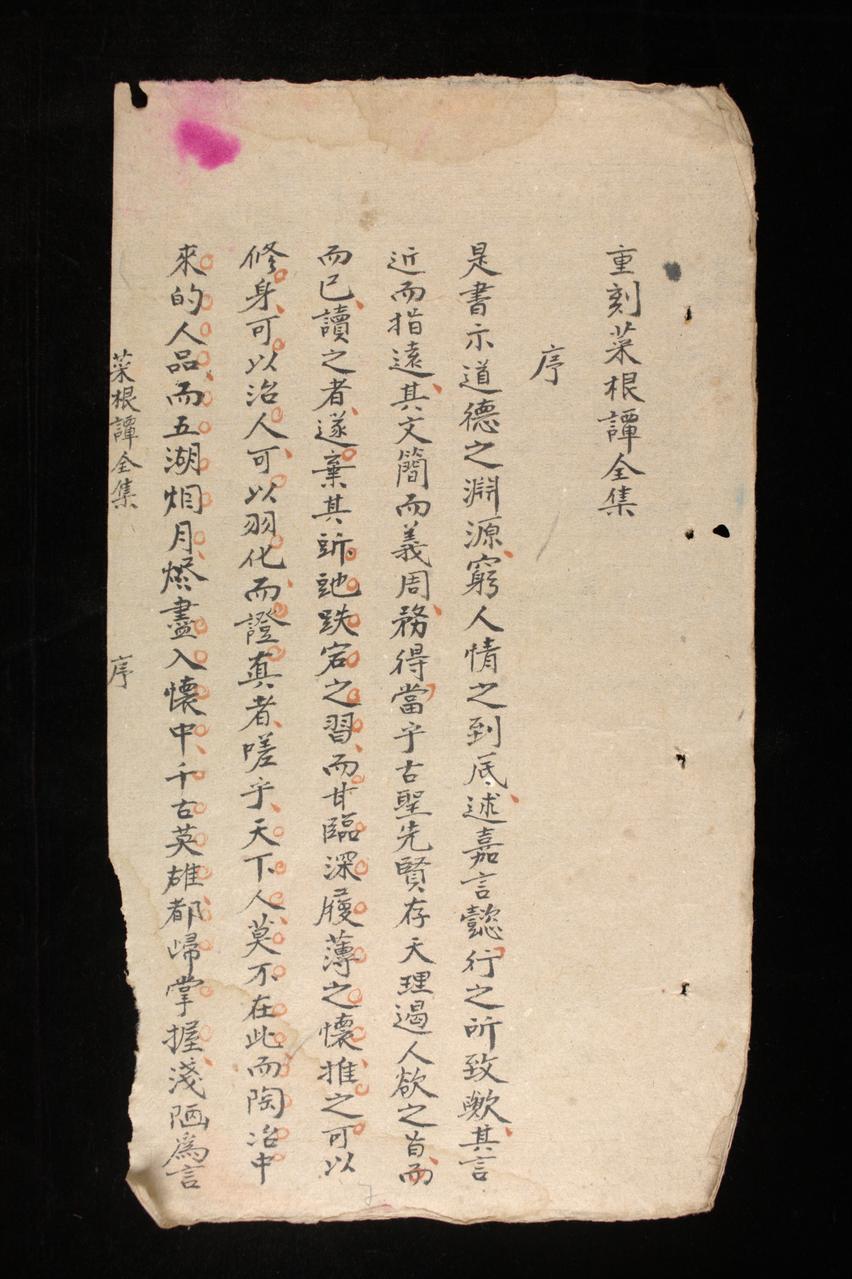 重刻菜根譚全集
序
是書示道德之淵源窮人情之到底述嘉言懿行之所致歟其言
近而指遠其文簡而義周務得當乎古聖先賢存天理遏人欲之旨而
而已讀之者遂棄其跅跎跌宕之習而甘臨深履薄之懷推之可以
修身可以治人可以羽化而證真者嗟乎天下人莫不在此而陶冶中
來的人品而五湖烟月燼盡入懷中千古英雄都歸掌握淺陋為言
菜根譚全集 序